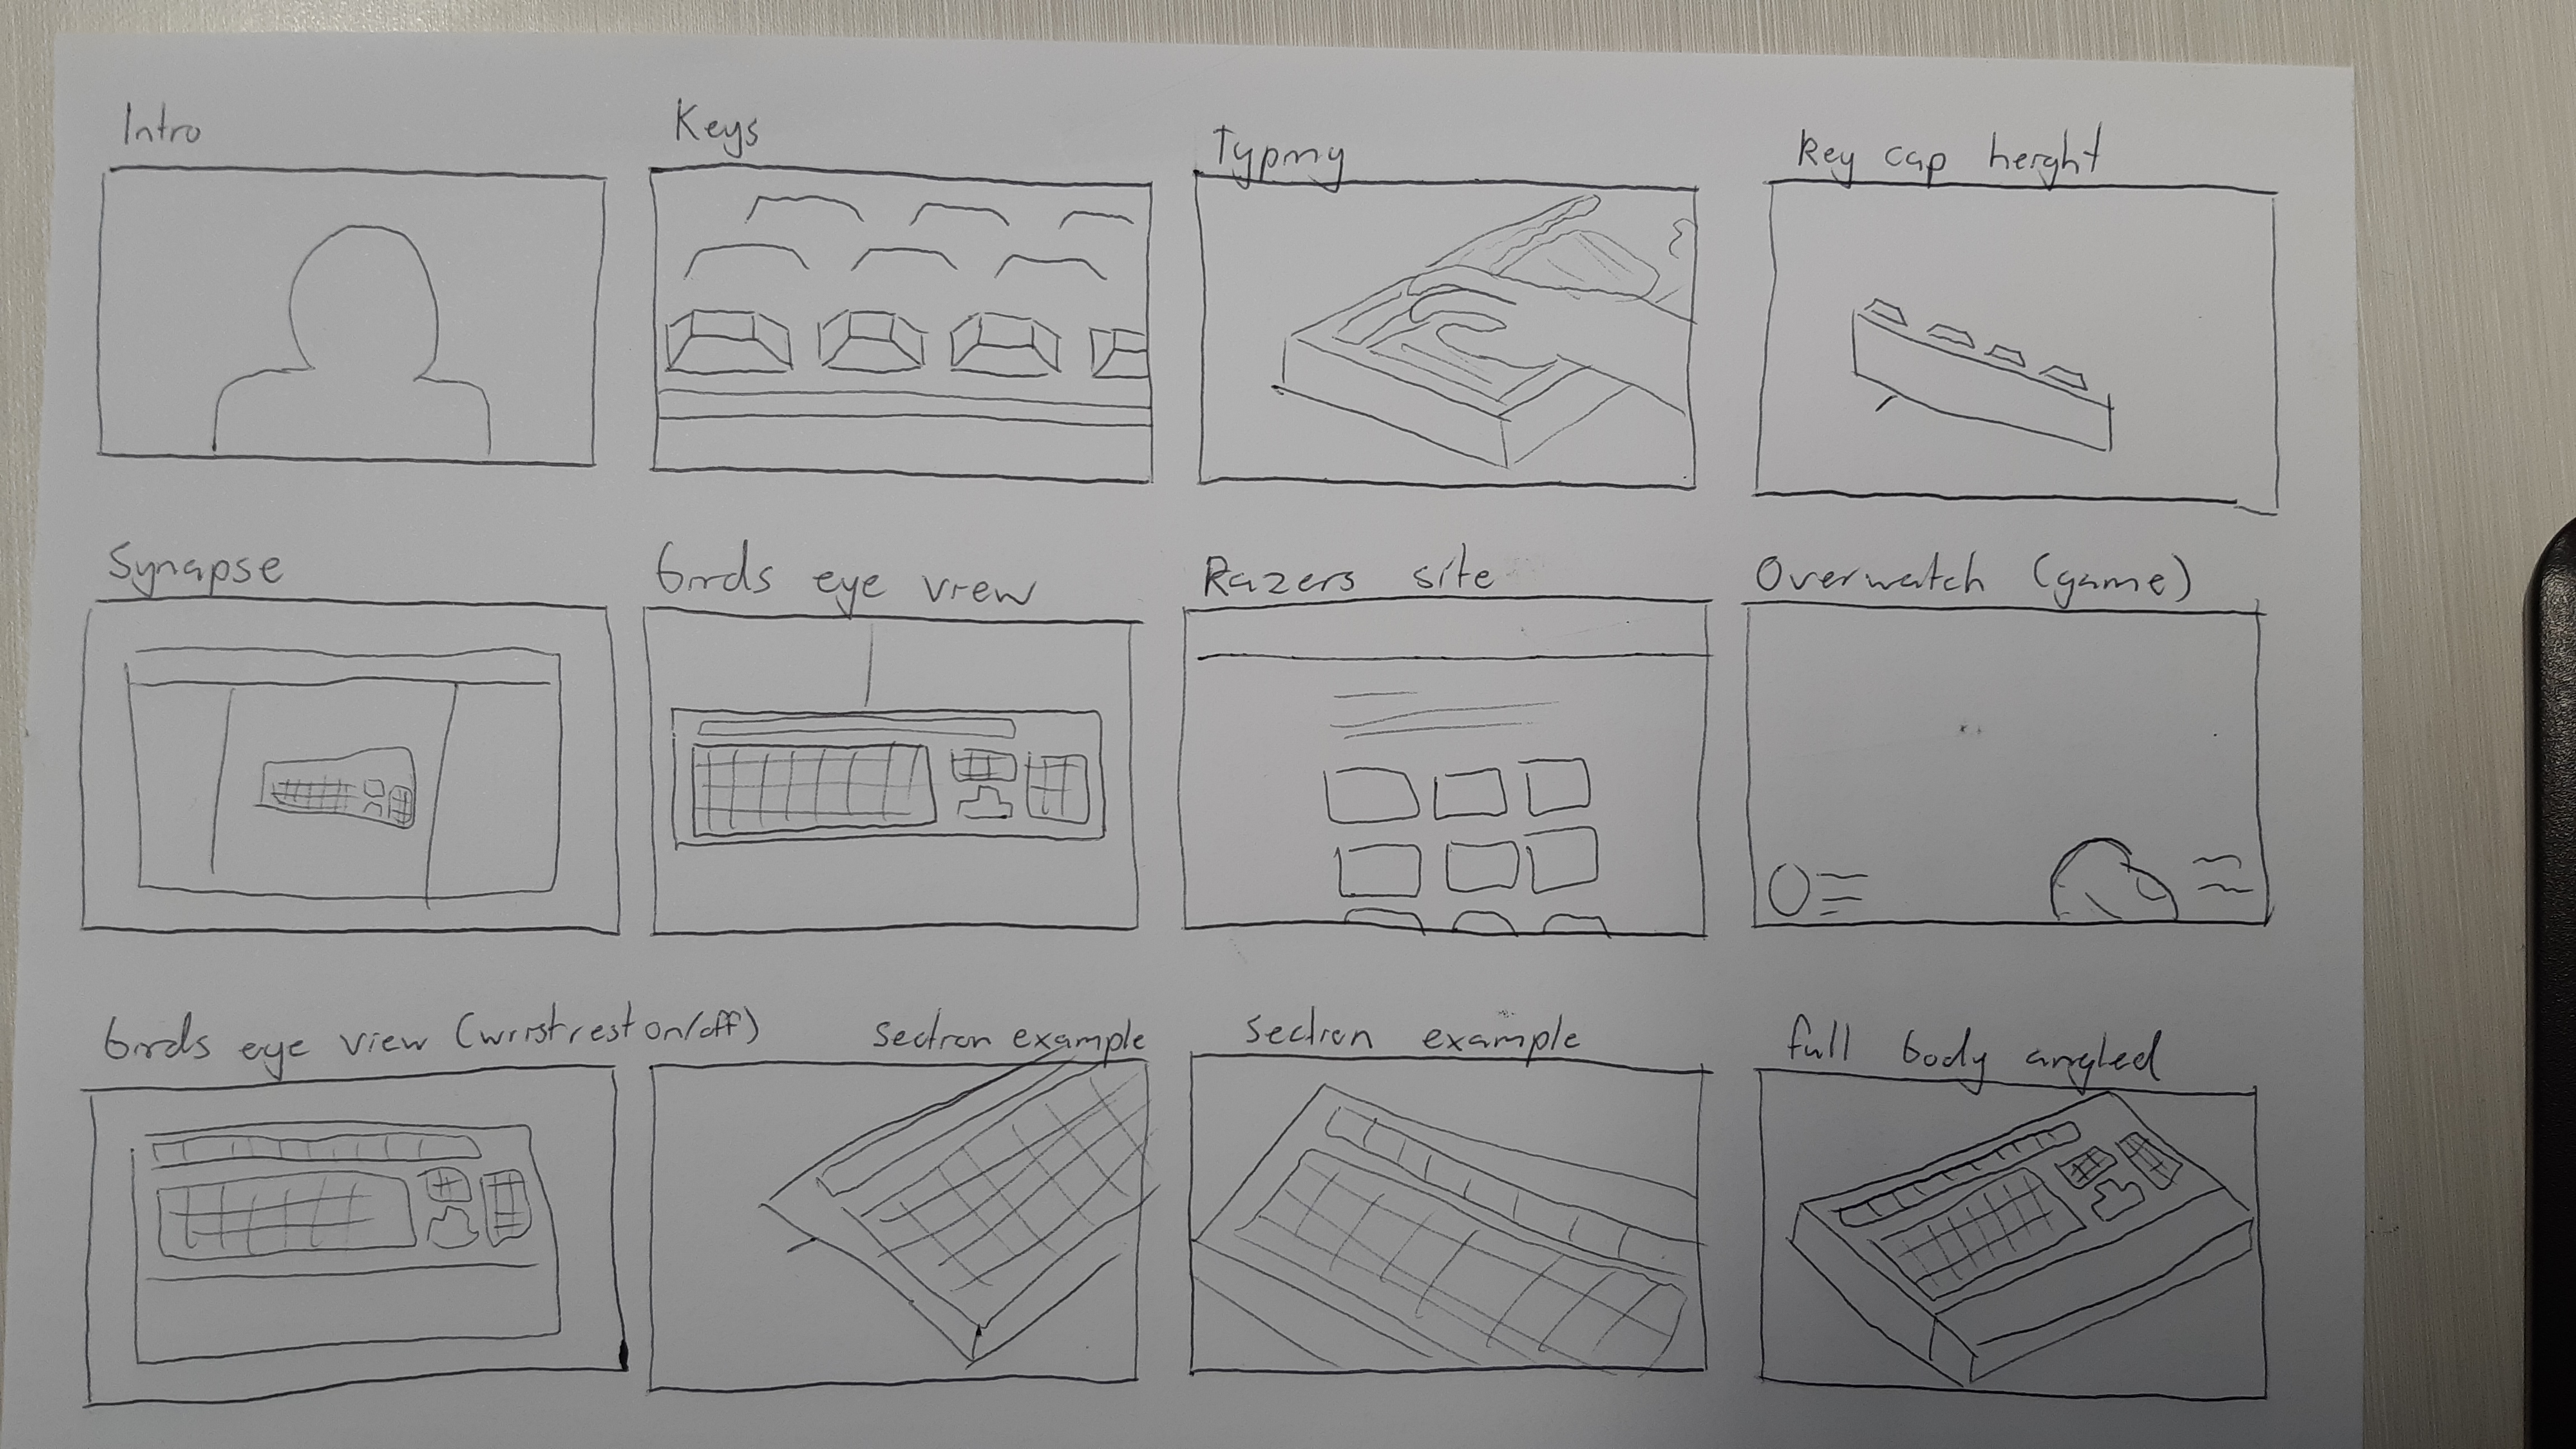 Intro
Keys
Typing
key cap height
Synapse
birds eye view
Razers site
Overwatch (game)
birds eye view (wristrest on/off)
section example
section example
full body angled